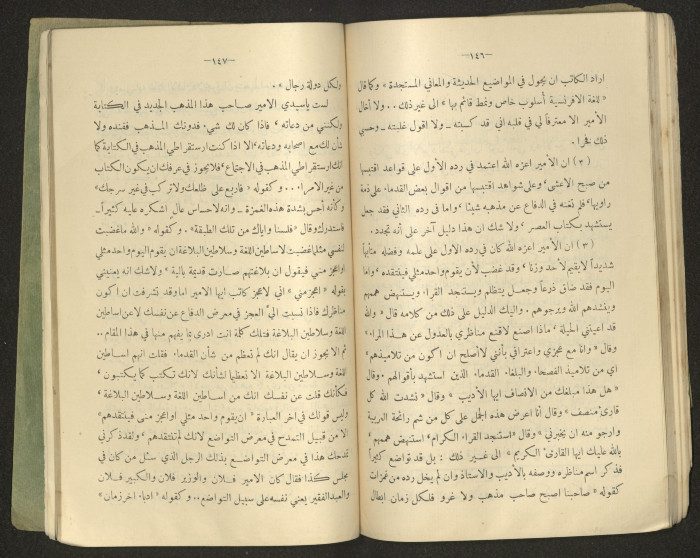 —١٤٦—
اراد الكاتب ان يجول في المواضيع الحديثة والمعاني المستجدة » وكما قال
« للغة الافرنسية أسلوب خاص ونمط قائم بها » الى غير ذلك .. ولا اخال
الأمير الا معترفاً لي في قلبه اني قد كسبته – ولا اقول غلبته – وحسبي
ذلك فخراً.
(٢) ان الأمير اعزه الله اعتمد في رده الأول على قواعد اقتبسها
من صبح الاعشى، وعلى شواهد اقتبسها من اقوال بعض القدماء على ذمة
راويها، فلم تغنه في الدفاع عن مذهبه شيئاً، واما في رده الثاني فقد جعل
يستشهد بكتاب العصر، ولا شك ان هذا دليل آخر على أنه تجدد.
(٣) ان الأمير اعزه الله كان في رده الاول على علمه وفضله متأبهاً
شديداً لا يقيم لأحد وزناً وقد غضب لأن يقوم واحد مثلي فينتقده، واما
اليوم فقد ضاق ذرعاً وجعل يتظلم ويستنجد القراء ويستنهض هممهم
وينشدهم الله ويرجوهم. واليك الدليل على ذلك من كلامه قال « والله
قد اعيتني الحيلة، ماذا اصنع لاقنع مناظري بالعدول عن هذا المراء»
وقال « وانا مع عجزي واعترافي بأنني لا أصلح ان اكون من تلاميذهم،
اي من تلاميذ الفصحاء والبلغاء القدماء الذين استشهد بأقوالهم. وقال
« هل هذا مبلغك من الانصاف ايها الأديب » وقال « نشدت الله كل
قارئ منصف » وقال أنا اعرض هذه الجمل على كل من شم رائحة العربية
وارجو منه ان يخبرني » وقال « استنجد القراء الكرام، استنهض هممهم،
بالله عليك ايها القارئ الكريم » الى غير ذلك : بل قد تواضع كثيراً
فذكر اسم مناظره ووصفه بالأديب والاستاذ وان لم يخل رده من غمزات
كقوله « صاحبنا اصبح صاحب مذهب ولا غرو فلكل زمان ابطال
—١٤٧—
ولكل دولة رجال ».
لست ياسيدي الامير صاحب هذا المذهب الجديد في الكتابة
ولكنني من دعاته، فاذا كان لك شيء فدونك المذهب ففنده ولا
شأن لك مع اصحابه ودعاته، الا اذا كنت ارستقراطي المذهب في الكتابة كما
انك ارستقراطي المذهب في الاجتماع، فلا يجوز في عرفك ان يكون الكتاب
من غير الامراء... وكقوله « فاربع على ظلعك ولا تركب في غير سرجك»
وكأنه أحس بشدة هذه الغمزة – وانه لاحساس عالٍ اشكره عليه كثيراً –
فاستدرك وقال « فلسنا واياك من تلك الطبقة ». وكقوله « والله ماغضبت
لنفسي مثلما غضبت لاساطين اللغة وسلاطين البلاغة ان يقوم اليوم واحد مثلي
او اعجز مني فيقول ان بلاغتهم صارت قديمة بالية » ولاشك انه يعنيني
بقوله « اعجز مني » اني لاعجز كاتب ايها الامير اما وقد تشرفت ان اكون
مناظرك فاذا نسبت اليَّ العجز في معرض الدفاع عن نفسك لا عن اساطين
اللغة وسلاطين البلاغة فتلك كلمة انت ادرى بما يفهم منها في هذا المقام..
ثم الا يجوز ان يقال انك لم تعظم من شأن القدماء فقلت انهم اساطين
اللغة وسلاطين البلاغة الا تعظيما لشأنك لانك تكتب كما يكتبون،
فكأنك قلت عن نفسك انك من اساطين اللغة وسلاطين البلاغة،
وليس قولك في اخر العبارة « ان يقوم واحد مثلي او اعجز مني فينتقدهم»
الا من قبيل التمدح في معرض التواضع لانك لم تنتقدهم، ولقد ذكرني
تمدحك هذا في معرض التواضع بذلك الرجل الذي سئل من كان في
مجلس كذا فقال كان الامير فلان والوزير فلان والكبير فلان
والعبد الفقير يعني نفسه على سبيل التواضع.. وكقوله « ادباء اخر زمان »